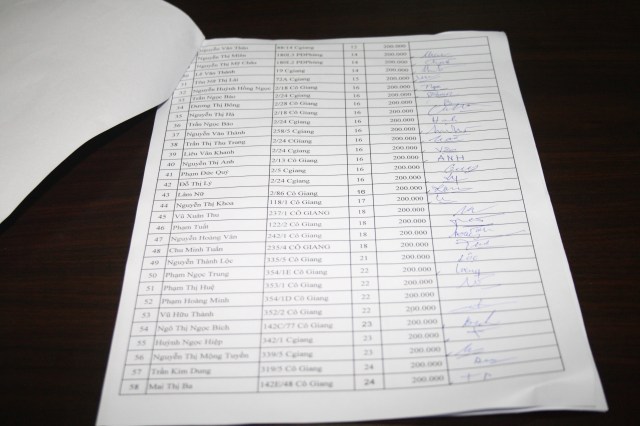 Nguyễn Văn Thân 88/14 Cgiang 13 200.000
Nguyễn Thị Miên 180E.1 PĐPhùng 14 200.000
Nguyễn Thị Mỹ Châu 180E.2 PĐPhùng 14 200.000
Lê Văn Thành 19 Cgiang 14 200.000
Thị Lài 72A Cgiang 15 200.000
Nguyễn Huỳnh Hồng Ngọc 2/18 Cô Giang 16 200.000
Trần Ngọc Báo 2/24 Cô Giang 16 200.000
34 Dương Thị Bông 2/28 Cô Giang 16 200.000
35 Nguyễn Thị Hà 2/18 Cô Giang 16 200.000
36 Trần Ngọc Báo 2/24 Cgiang 16 200.000
37 Nguyễn Văn Thành 238/5 Cgiang 16 200.000
38 Trần Thị Thu Trang 2/24 CGiang 16 200.000
39 Liêu Vân Khanh 2/24 Cô Giang 16 200.000
40 Nguyễn Thị Anh 2/13 Cô Giang 16 200.000 ANH
41 Phạm Đức Quý 2/5 Cgiang 16 200.000
42 Đỗ Thị Lý 2/24 Cô Giang 16 200.000
43 Lâm Nữ 2/86 Cô Giang 16 200.000
44 Nguyễn Thị Khoa 118/1 Cô Giang 17 200.000
45 Vũ Xuân Thu 237/1 CÔ GIANG 18 200.000
46 Phạm Tuất 122/2 Cô Giang 18 200.000
47 Nguyễn Hoàng Vân 242/1 Cô Giang 18 200.000
48 Chu Minh Tuấn 235/4 CÔ GIANG 18 200.000
49 Nguyễn Thành Lộc 335/5 Cô Giang 21 200.000
50 Phạm Ngọc Trung 354/1E Cô Giang 22 200.000
51 Phạm Thị Huệ 353/1 Cô Giang 22 200.000
52 Phạm Hoàng Minh 354/1D Cô Giang 22 200.000
53 Vũ Hữu Thành 352/2 Cô Giang 22 200.000
54 Ngô Thị Ngọc Bích 142C/77 Cô Giang 23 200.000
55 Huỳnh Ngọc Hiệp 342/1 Cgiang 23 200.000
56 Nguyễn Thị Mộng Tuyền 339/5 Cgiang 23 200.000
57 Trần Kim Dung 319/5 Cô Giang 24 200.000
58 Mai Thị Ba 142E/48 Cô Giang 24 200.000